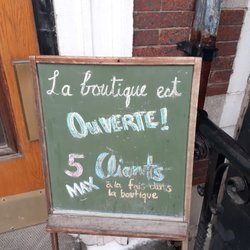 La boutique est
OUVERTE!
5 Clients
MAX à la fois dans
la boutique